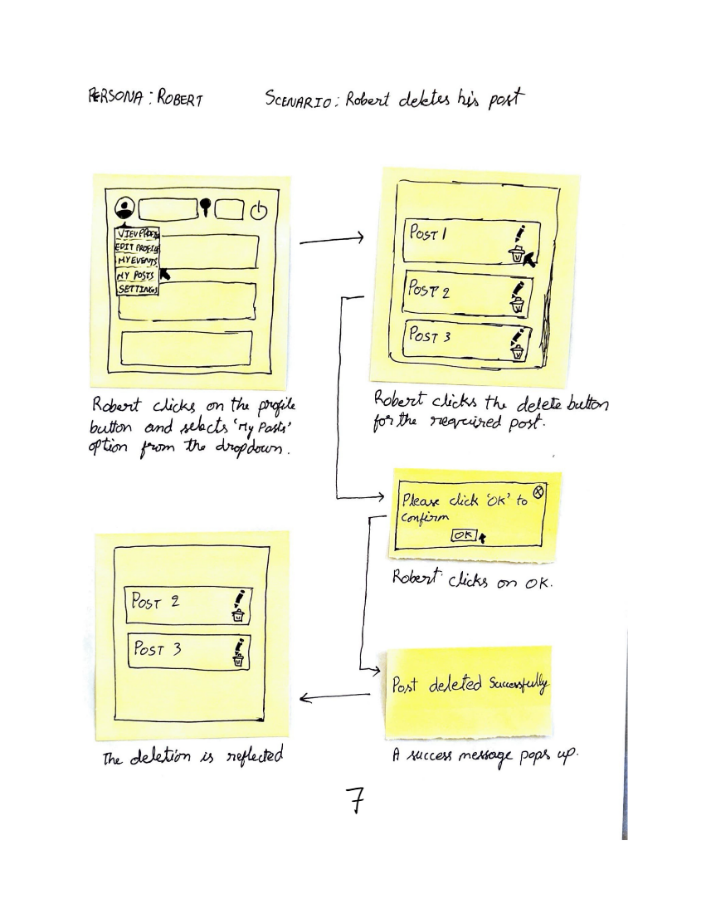 PERSONA : ROBERT
SCENARIO : Robert deletes his post
VIEW PROFILE
EDIT PROFILE
MY EVENTS
MY POSTS
SETTINGS
Robert clicks on the profile
button and selects 'My Posts'
option from the dropdown.
POST 1
POST 2
POST 3
Robert clicks the delete button
for the reqruired post.
Please click 'OK' to
confirm
OK
Robert clicks on OK.
Post deleted Successfully
A success message pops up.
POST 2
POST 3
The deletion is reflected
7